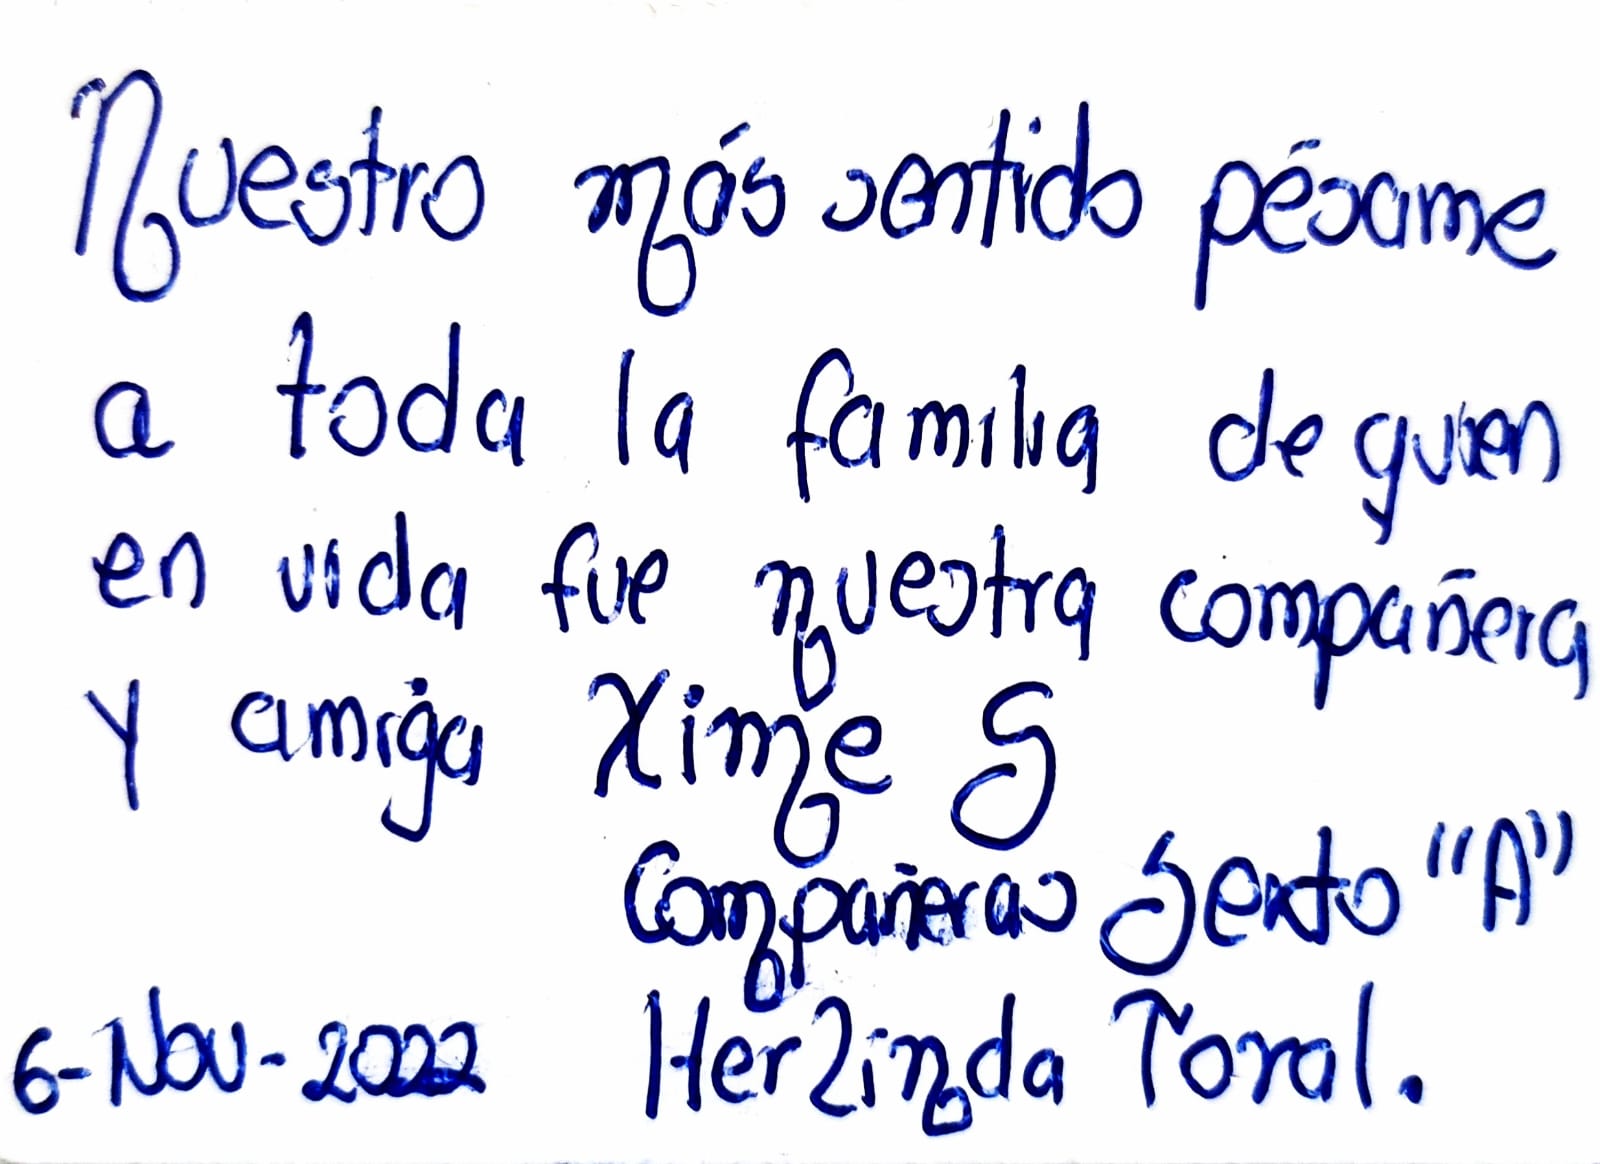 Nuestro más sentido pésame
a toda la familia de quien
en vida fue nuestra compañera
y amiga Xime S
Compañeras Sexto "A"
6-Nov-2022 Herlinda Toral.